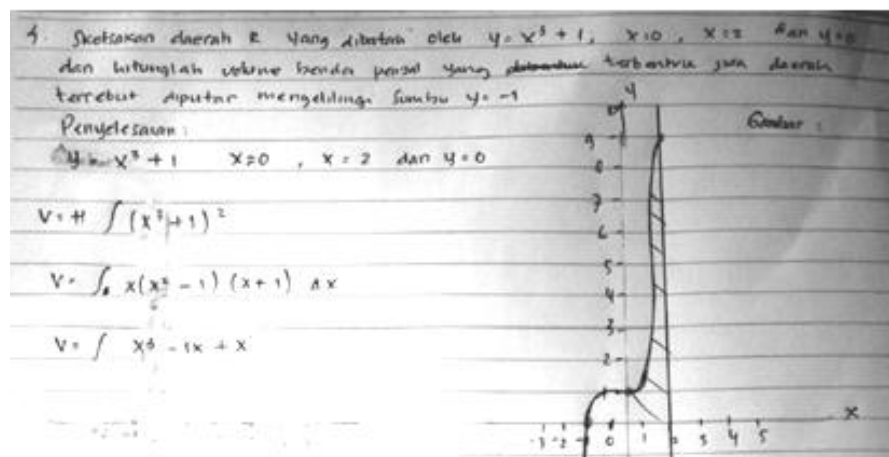 4. Sketsakan daerah R yang dibatasi oleh y = x³ + 1, x=0, x=2 dan y=0
dan hitunglah volume benda pejal yang terbentuk jika daerah
tersebut diputar mengelilingi sumbu y = -1
Penyelesaian :
y = x³ + 1 x=0 , x = 2 dan y=0
Gambar :
V = π ∫ (x³ + 1)²
V = ∫ x(x² - 1) (x + 1) dx
V = ∫ x³ - 1x + x
y
9
8
7
6
5
4
3
2
1
-3 -2 0 1 2 3 4 5 x